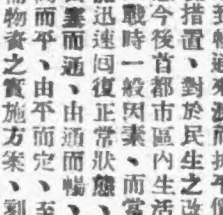 措置、對於民生之改
今後首都市區內生活
戰時一般因素、而當
迅速回復正常狀態、
而通、由通而暢、
而平、由平而定、至
物資之實施方案、劃